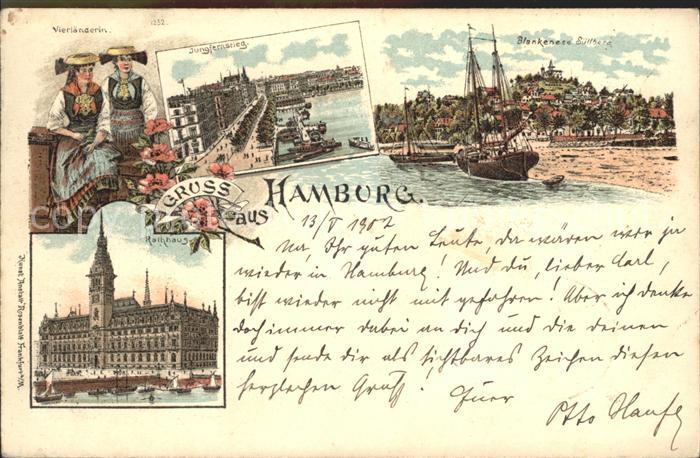 Vierländerin.
1252.
Jungfernstieg.
Blankenese Süllberg
GRUSS
AUS
HAMBURG.
Rathhaus
13/V 1902
Na, Ihr guten Leute, da wären wir ja
wieder in Hamburg! Und du, lieber Carl,
bist wieder nicht mit gefahren! Aber ich denke
doch immer dabei an dich und die deinen
und sende dir als sichtbares Zeichen diesen
herzlichen Gruß! Euer
Otto
Kunst Anstalt Rosenblatt Frankfurt a/M.